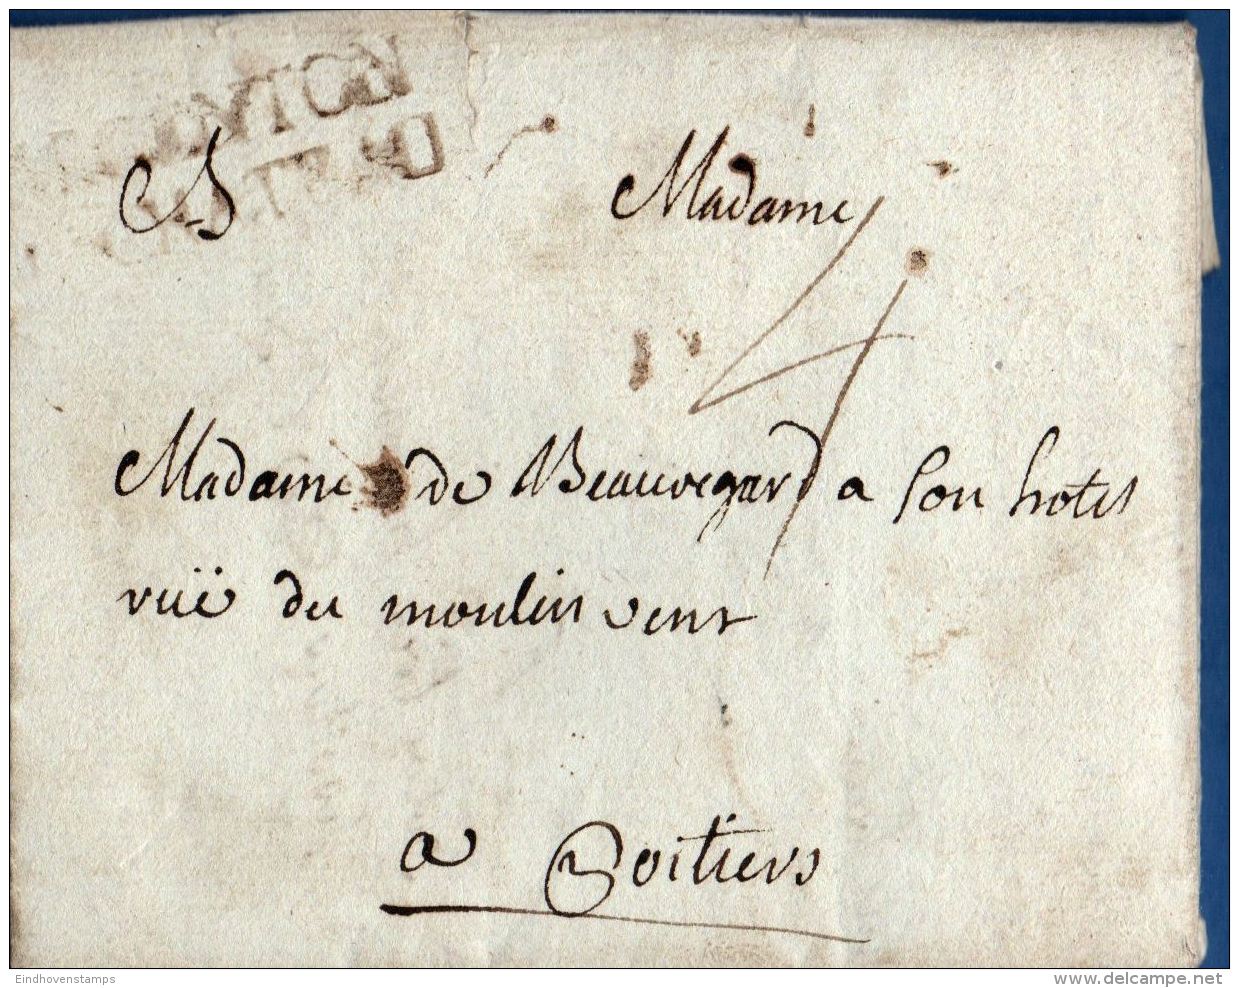 A Madame
4
Madame de Beauvegard a son hotel
ruë du moulin vent
a Poitiers
Eindhovenstamps
delcampe.net